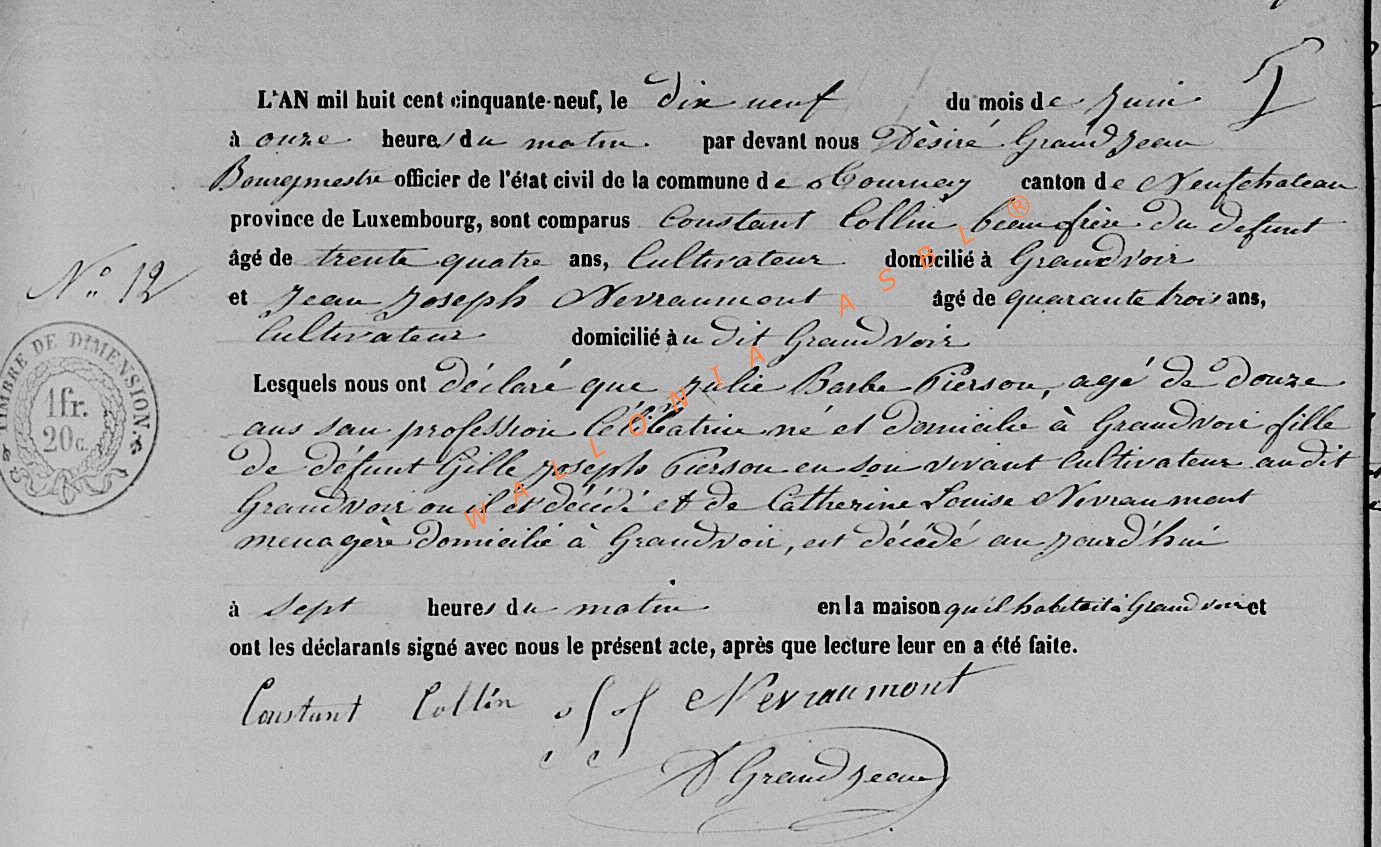 L'AN mil huit cent cinquante-neuf, le dix neuf du mois de Juin
à onze heures du matin par devant nous Dèsiré Grandjean
Bourgmestre officier de l'état civil de la commune de Tournay canton de Neufchateau
province de Luxembourg, sont comparus Constant Collin beaufrère du defunt
âgé de trente quatre ans, Cultivateur domicilié à Grandvoir
N° 12
et Jean Joseph Nevraumont âgé de quarante trois ans,
Cultivateur domicilié au dit Grandvoir
Lesquels nous ont déclaré que Julie Barbe Pierson, agé de douze
ans san profession Célibatrice né et domicilié à Grandvoir fille
de défunt Gille Joseph Pierson en son vivant Cultivateur audit
Grandvoir ou il est décédé et de Catherine Louise Nevraumont
menagère domicilié à Grandvoir, est décédé aujourd'hui
à sept heures du matin en la maison qu'il habitait à Grandvoir et
ont les déclarants signé avec nous le présent acte, après que lecture leur en a été faite.
Constant Collin J J Nevraumont
D Grandjean
TIMBRE DE DIMENSION
1fr.
20c.
WALLONIA ASBL ®